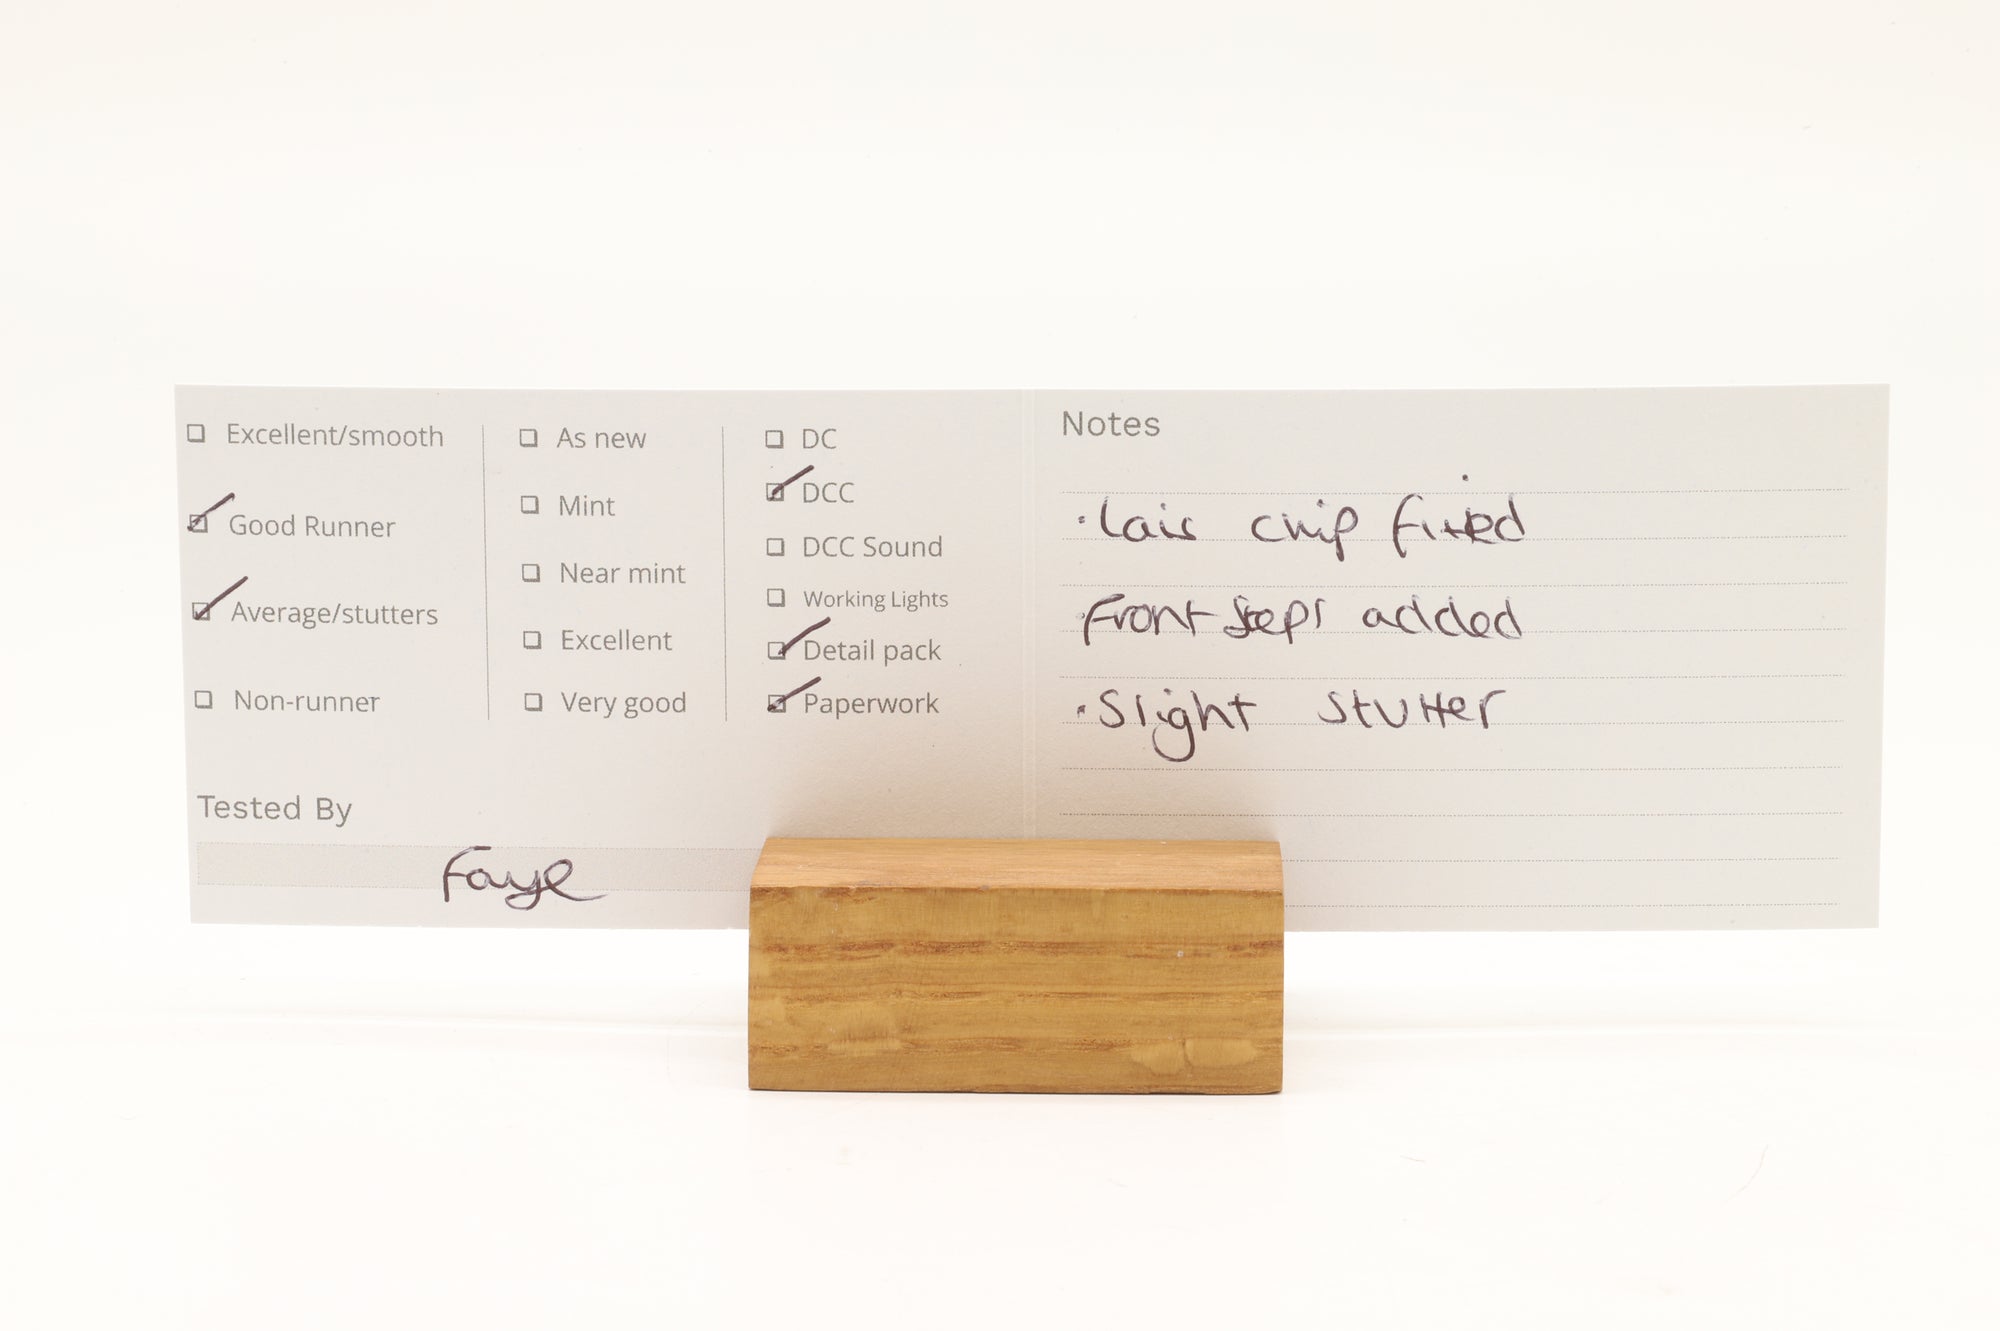 Excellent/smooth
Good Runner
Average/stutters
Non-runner
As new
Mint
Near mint
Excellent
Very good
DC
DCC
DCC Sound
Working Lights
Detail pack
Paperwork
Tested By
Faye
Notes
· Lais chip fitted
· Front steps added
· Slight stutter